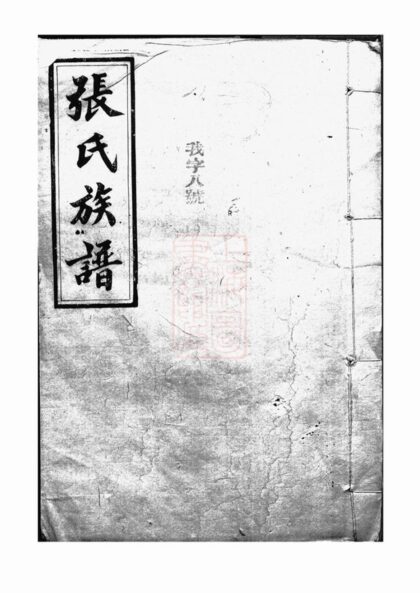 張氏族譜
我字八號